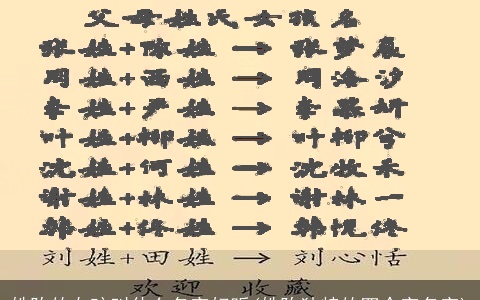 父母姓氏女孩名
张姓+陈姓→张梦晨
周姓+西姓→周洛汐
李姓+严姓→李慕妍
叶姓+柳姓→叶柳兮
沈姓+何姓→沈牧禾
谢姓+林姓→谢林一
韩姓+佟姓→韩悦佟
刘姓+田姓→刘心恬
欢迎 收藏